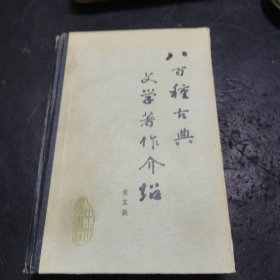 八百種古典
文学著作介紹
黄立振